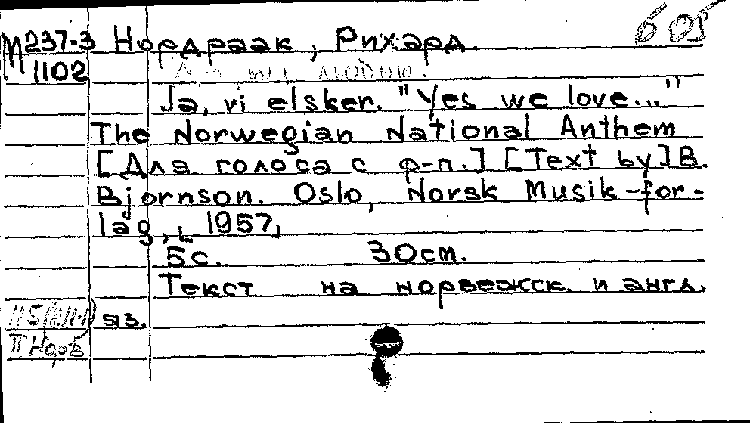 М237-3 Нордраак, Рихард. б 05
1102
Да, мы любим.
Ja, vi elsker. "Yes we love..."
The Norwegian National Anthem
[Для голоса с ф-п.] [Text by] B.
Bjornson. Oslo, Norsk Musik-for-
lag, 1957,
5с. 30см.
Текст на норвежск. и англ.
яз.
П Норв